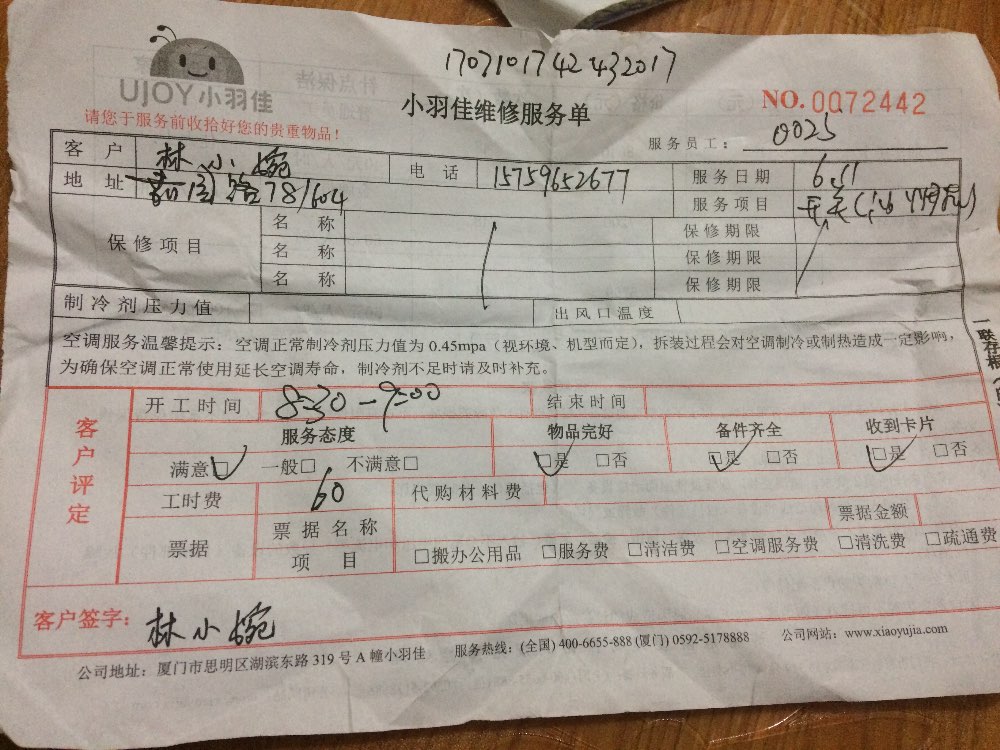 1707101742432017
UJOY小羽佳
小羽佳维修服务单
NO.0072442
请您于服务前收拾好您的贵重物品！
服务员工： 0025
客户 林小婉 电话 15759652677 服务日期 6.11
地址 路781604 服务项目 开关
保修项目 名称 保修期限
名称 保修期限
名称 保修期限
制冷剂压力值 出风口温度
空调服务温馨提示：空调正常制冷剂压力值为 0.45mpa（视环境、机型而定），拆装过程会对空调制冷或制热造成一定影响，
为确保空调正常使用延长空调寿命，制冷剂不足时请及时补充。
一联存根
客户评定
开工时间 8:30-9:00 结束时间
服务态度 物品完好 备件齐全 收到卡片
满意□ 一般□ 不满意□ □是 □否 □是 □否 □是 □否
工时费 60 代购材料费
票据 票据名称 票据金额
项目 □搬办公用品 □服务费 □清洁费 □空调服务费 □清洗费 □疏通费
客户签字： 林小婉
公司地址：厦门市思明区湖滨东路 319 号 A 幢小羽佳 服务热线：(全国) 400-6655-888 (厦门) 0592-5178888 公司网站：www.xiaoyujia.com